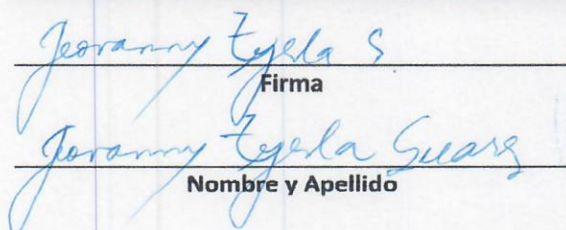 Jeovanny Tejerla S
Firma
Jovanny Tejerla Suarez
Nombre y Apellido